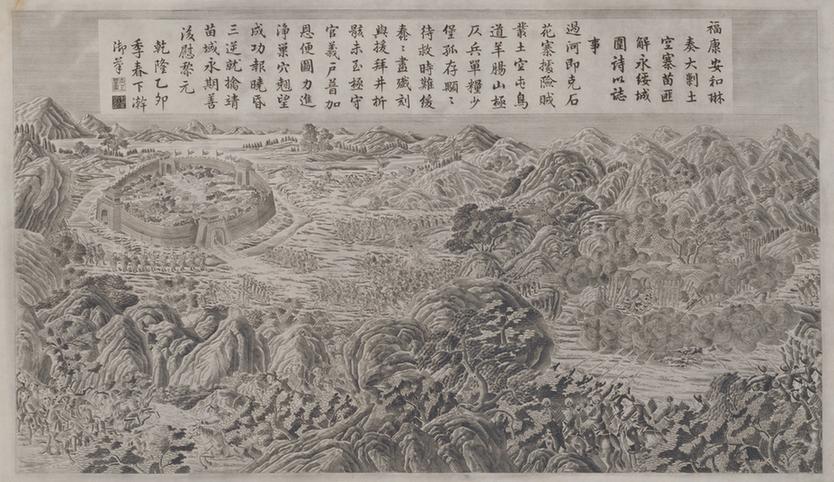 福康安和琳
奏大剿土
空寨苗匪
解永綏城
圍詩以誌
事
過河即克石
花寨據險賊
叢土空屯鳥
道羊腸山極
仄兵單糧少
堡孤存顒〻
待救時難緩
奏〻盡殲刻
與援拜井折
駭未至撫守
官義戸普加
恩便圖力進
淨巢穴翹望
成功報曉昏
三逆就擒靖
苗城永期善
後慰黎元
乾隆乙卯
季春下澣
御筆